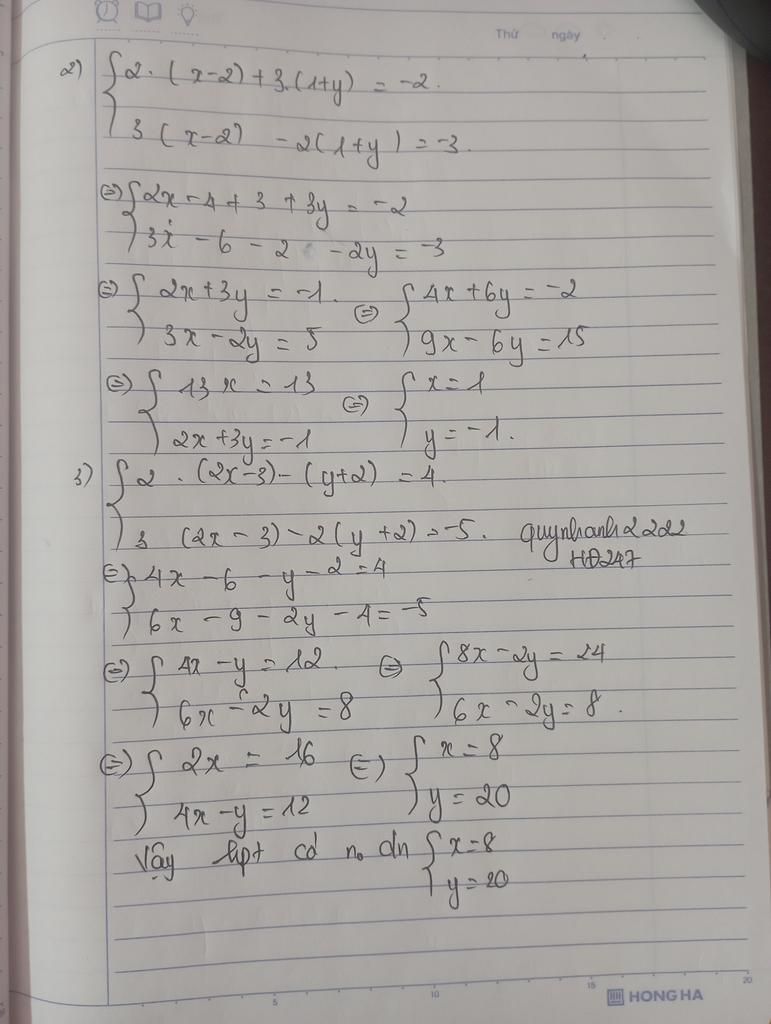 Thứ ngày
2) { 2. (x-2) + 3.(1+y) = -2.
3 (x-2) - 2(1+y) = -3.
⇔ { 2x - 4 + 3 + 3y = -2
3x - 6 - 2 - 2y = -3
⇔ { 2x+3y = -1. ⇔ { 4x+6y = -2
3x - 2y = 5 9x - 6y = 15
⇔ { 13x = 13 ⇔ { x = 1
2x+3y = -1 y = -1.
3) { 2 . (2x-3) - (y+2) = 4.
3 (2x - 3) - 2(y+2) = -5. quynhanh2222
HĐ247
⇔ { 4x - 6 - y - 2 = 4
6x - 9 - 2y - 4 = -5
⇔ { 4x - y = 12. ⇔ { 8x - 2y = 24
6x - 2y = 8 6x - 2y = 8.
⇔ { 2x = 16 ⇔ { x = 8
4x - y = 12 y = 20
Vậy hpt có no dn { x = 8
y = 20
5 10 15 20
HONG HA